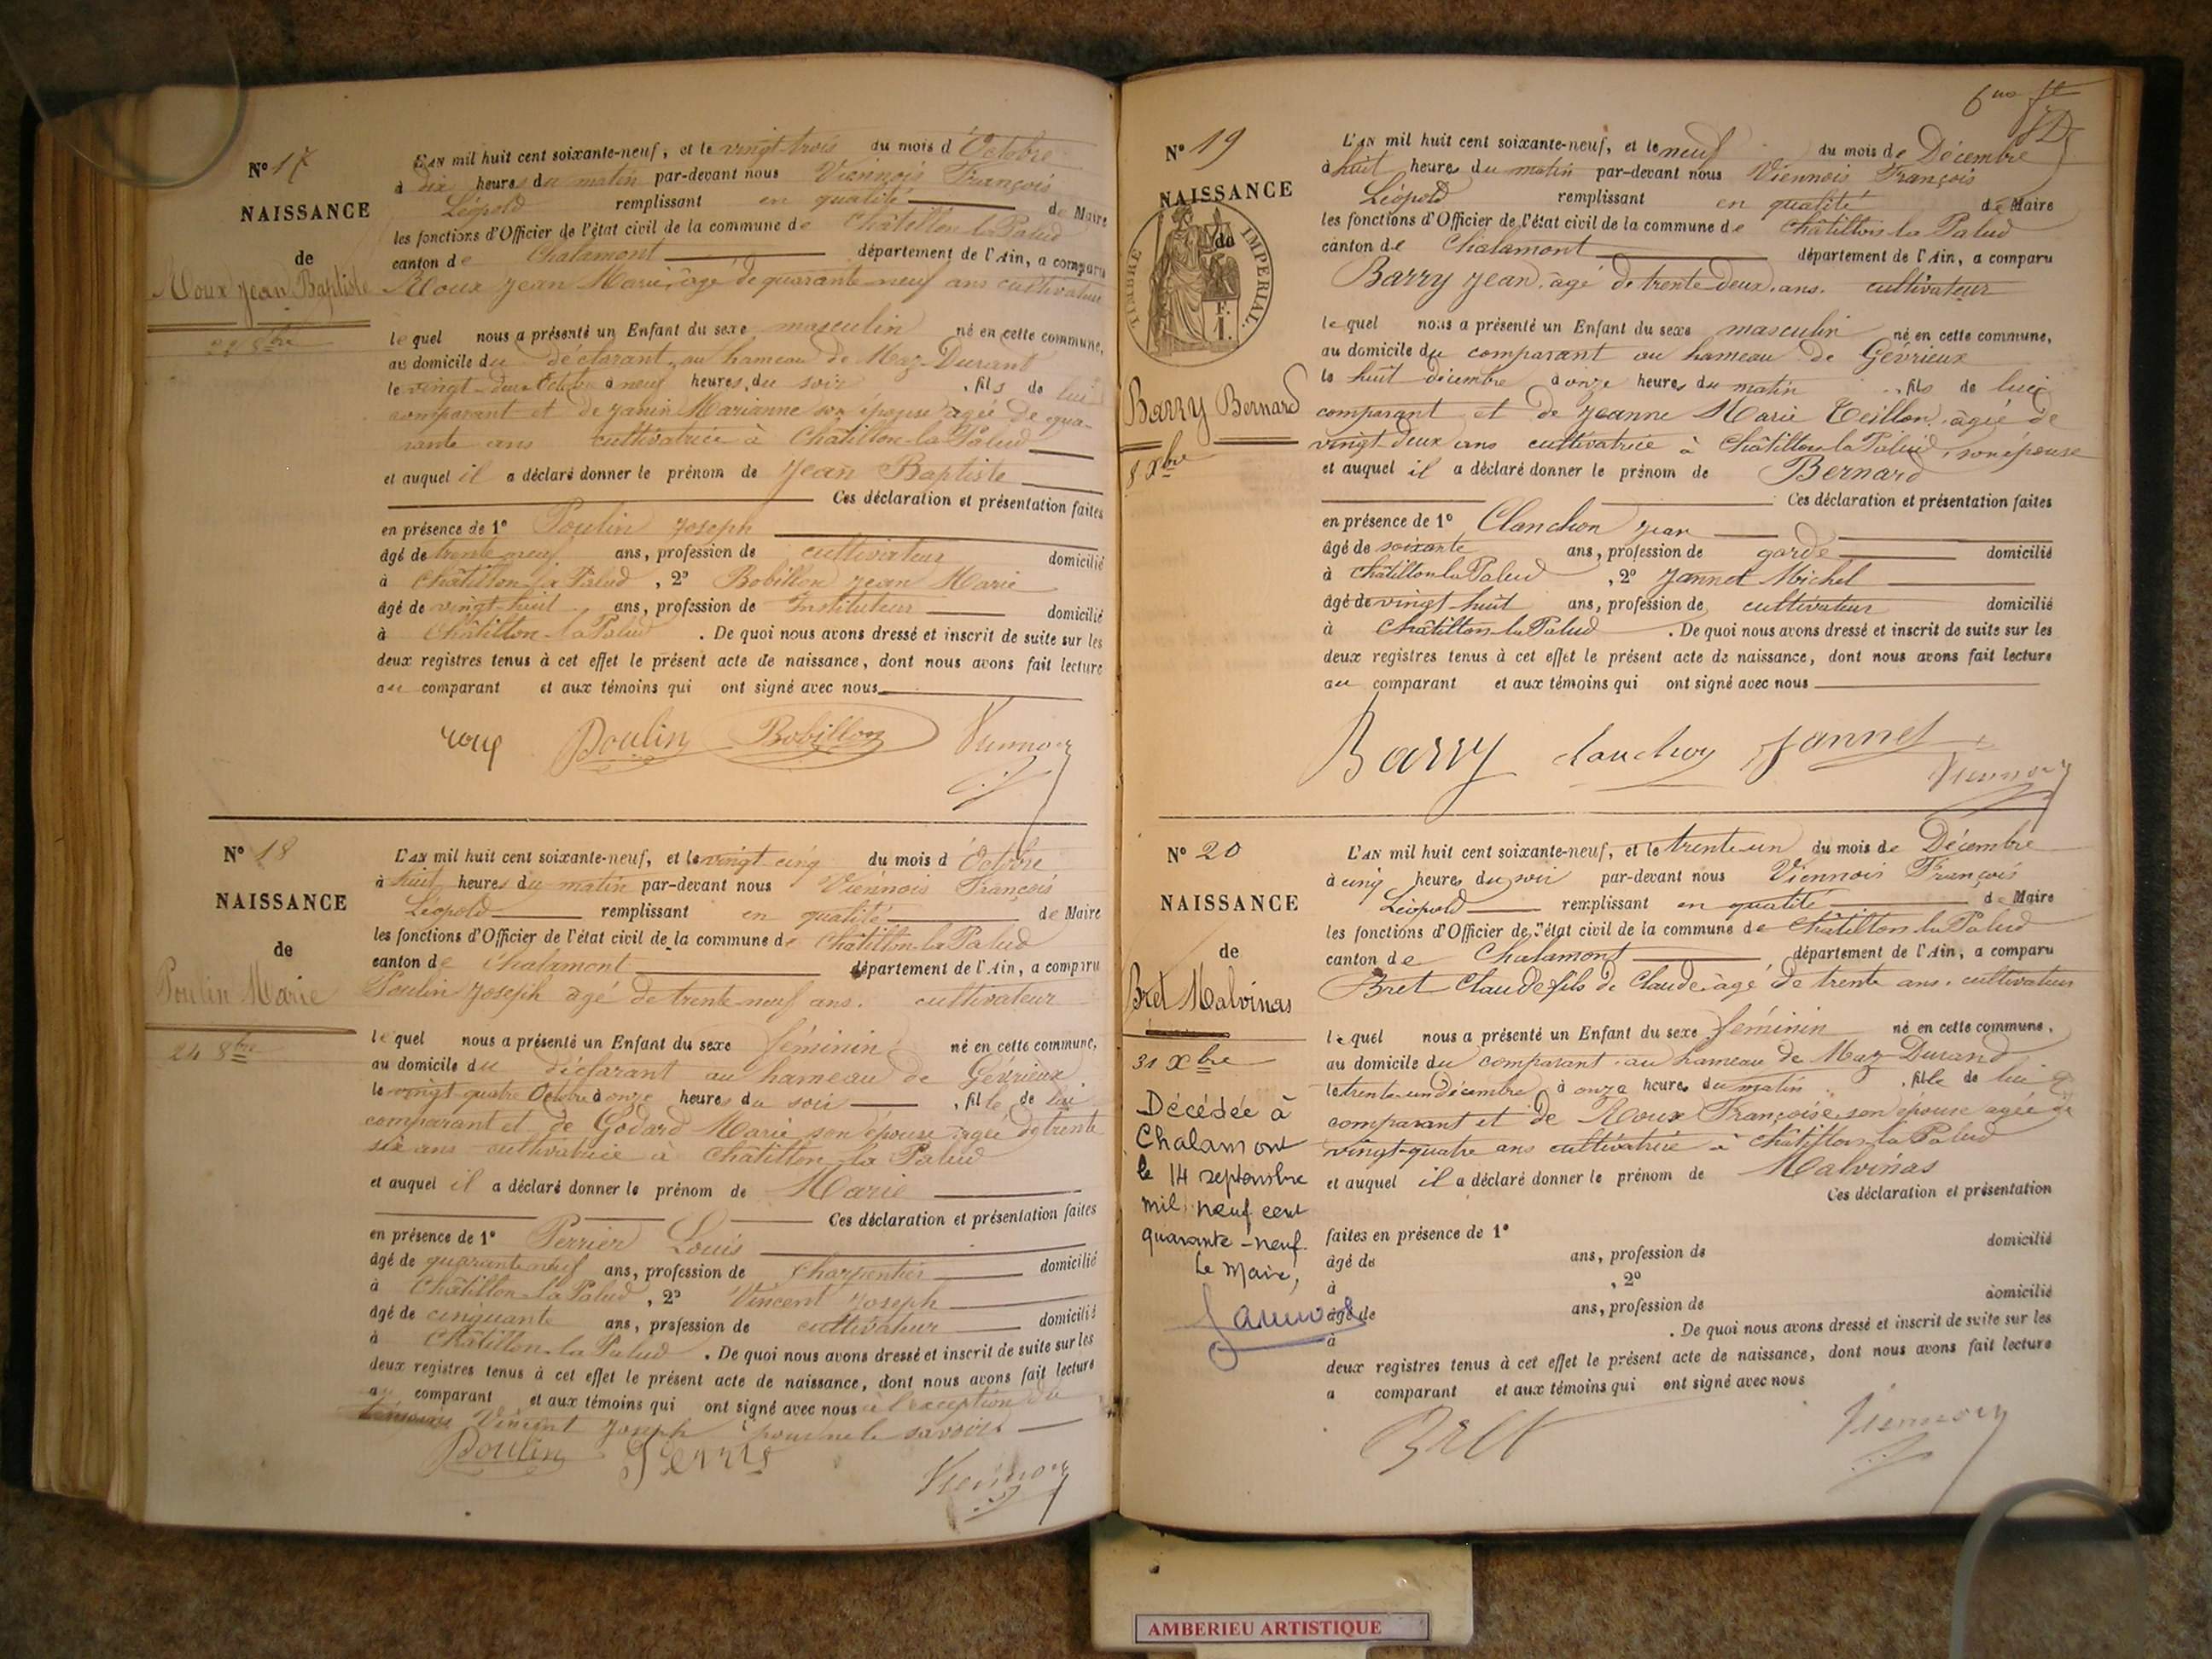 N° 17
NAISSANCE
de
Roux Jean Baptiste
22 8bre
L'AN mil huit cent soixante-neuf, et le vingt-trois du mois d'Octobre
à dix heures du matin par-devant nous Viennois François
Léopold remplissant en qualité de Maire
les fonctions d'Officier de l'état civil de la commune de Châtillon-la-Palud
canton de Chalamont département de l'Ain, a comparu
Roux Jean Marie, âgé de quarante-neuf ans cultivateur
lequel nous a présenté un Enfant du sexe masculin né en cette commune,
au domicile du déclarant, au hameau de Maz-Durant
le vingt-deux Octobre à neuf heures du soir, fils de lui
comparant et de Janin Marianne son épouse âgée de qua-
rante ans cultivatrice à Châtillon-la-Palud
et auquel il a déclaré donner le prénom de Jean Baptiste
Ces déclaration et présentation faites
en présence de 1° Poulin Joseph
âgé de trente neuf ans, profession de cultivateur domicilié
à Châtillon-la-Palud, 2° Bobillon Jean Marie
âgé de vingt-huit ans, profession de Instituteur domicilié
à Châtillon-la-Palud. De quoi nous avons dressé et inscrit de suite sur les
deux registres tenus à cet effet le présent acte de naissance, dont nous avons fait lecture
au comparant et aux témoins qui ont signé avec nous
roux Poulin Bobillon Viennois
N° 18
NAISSANCE
de
Poulin Marie
24 8bre
L'AN mil huit cent soixante-neuf, et le vingt cinq du mois d'Octobre
à huit heures du matin par-devant nous Viennois François
Léopold remplissant en qualité de Maire
les fonctions d'Officier de l'état civil de la commune de Châtillon-la-Palud
canton de Chalamont département de l'Ain, a comparu
Poulin Joseph âgé de trente-neuf ans. cultivateur
lequel nous a présenté un Enfant du sexe féminin né en cette commune,
au domicile du déclarant au hameau de Gévrieux
le vingt quatre Octobre à onze heures du soir, fille de lui
comparant et de Godard Marie son épouse âgée de trente
six ans cultivatrice à Châtillon-la-Palud
et auquel il a déclaré donner le prénom de Marie
Ces déclaration et présentation faites
en présence de 1° Perrier Louis
âgé de quarante neuf ans, profession de charpentier domicilié
à Châtillon-la-Palud, 2° Vincent Joseph
âgé de cinquante ans, profession de cultivateur domicilié
à Châtillon-la-Palud. De quoi nous avons dressé et inscrit de suite sur les
deux registres tenus à cet effet le présent acte de naissance, dont nous avons fait lecture
au comparant et aux témoins qui ont signé avec nous à l'exception du
témoin Vincent Joseph pour ne le savoir
Poulin Viennois
N° 19
NAISSANCE
de
TIMBRE IMPERIAL.
1 F.
Barry Bernard
8 Xbre
L'AN mil huit cent soixante-neuf, et le neuf du mois de Décembre
à huit heures du matin par-devant nous Viennois François
Léopold remplissant en qualité de Maire
les fonctions d'Officier de l'état civil de la commune de Châtillon la Palud
canton de Chalamont département de l'Ain, a comparu
Barry Jean, âgé de trente-deux ans. cultivateur
lequel nous a présenté un Enfant du sexe masculin né en cette commune,
au domicile du comparant au hameau de Gévrieux
le huit décembre à onze heures du matin, fils de lui
comparant et de Jeanne Marie Teillon, âgée de
vingt-deux ans cultivatrice à Châtillon-la-Palud, son épouse
et auquel il a déclaré donner le prénom de Bernard
Ces déclaration et présentation faites
en présence de 1° Clanchon Jean
âgé de soixante ans, profession de garde domicilié
à Châtillon la Palud, 2° Jannet Michel
âgé de vingt huit ans, profession de cultivateur domicilié
à Châtillon-la-Palud. De quoi nous avons dressé et inscrit de suite sur les
deux registres tenus à cet effet le présent acte de naissance, dont nous avons fait lecture
au comparant et aux témoins qui ont signé avec nous
Barry Jannet Viennois
N° 20
NAISSANCE
de
Bret Malvinas
31 Xbre
Décédée à
Chalamont
le 14 septembre
mil neuf cent
quarante-neuf.
Le Maire,
L'AN mil huit cent soixante-neuf, et le trente-un du mois de Décembre
à cinq heures du soir par-devant nous Viennois François
Léopold remplissant en qualité de Maire
les fonctions d'Officier de l'état civil de la commune de Châtillon la Palud
canton de Chalamont département de l'Ain, a comparu
Bret Claude fils de Claude âgé de trente ans. cultivateur
lequel nous a présenté un Enfant du sexe féminin né en cette commune,
au domicile du comparant au hameau de Maz-Durand
le trente-un décembre à onze heures du matin, fille de lui
comparant et de Roux Françoise son épouse âgée de
vingt-quatre ans cultivatrice à Châtillon-la-Palud
et auquel il a déclaré donner le prénom de Malvinas
Ces déclaration et présentation
faites en présence de 1° domicilié
âgé de ans, profession de
à , 2° domicilié
âgé de ans, profession de
à . De quoi nous avons dressé et inscrit de suite sur les
deux registres tenus à cet effet le présent acte de naissance, dont nous avons fait lecture
a comparant et aux témoins qui ont signé avec nous
Bret Viennois
AMBERIEU ARTISTIQUE